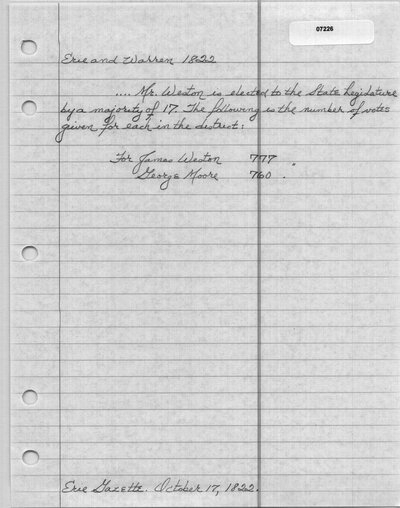 07226
Erie and Warren 1822
.... Mr. Weston is elected to the State Legislature
by a majority of 17. The following is the number of votes
given for each in the district:
For James Weston 777 "
George Moore 760 .
Erie Gazette. October 17, 1822.